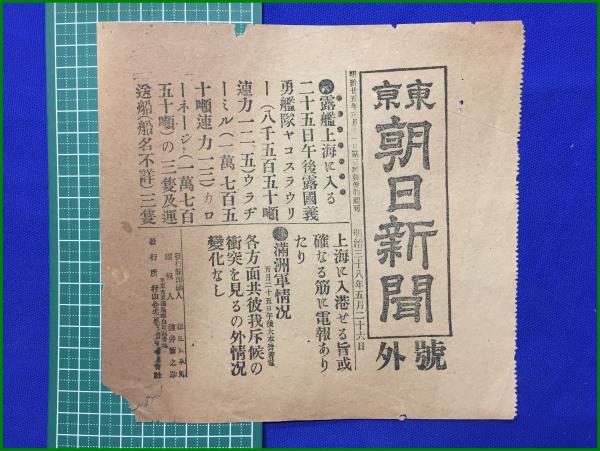 東京
朝日新聞
號外
明治三十八年五月二十六日
露艦上海に入る
二十五日午後露國義
勇艦隊ヤコスラウリ
ー(八千五百五十噸
速力一二、五)ウラヂ
ーミル(一萬〇七百五
十噸速力一二三)カロ
ーネージ(一萬〇七百
五十噸)の三隻及運
送船(船名不詳)三隻
上海に入港せる旨或
確なる筋に電報あり
たり
滿洲軍情况
五月二十五日午後大本營着電
各方面共彼我斥候の
衝突を見るの外情况
變化なし
發行所